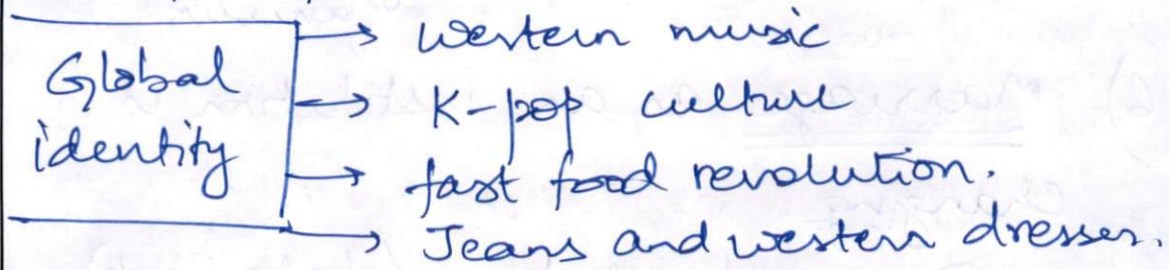 Global
identity
→ Western music
→ K-pop culture
→ fast food revolution.
→ Jeans and western dresses.